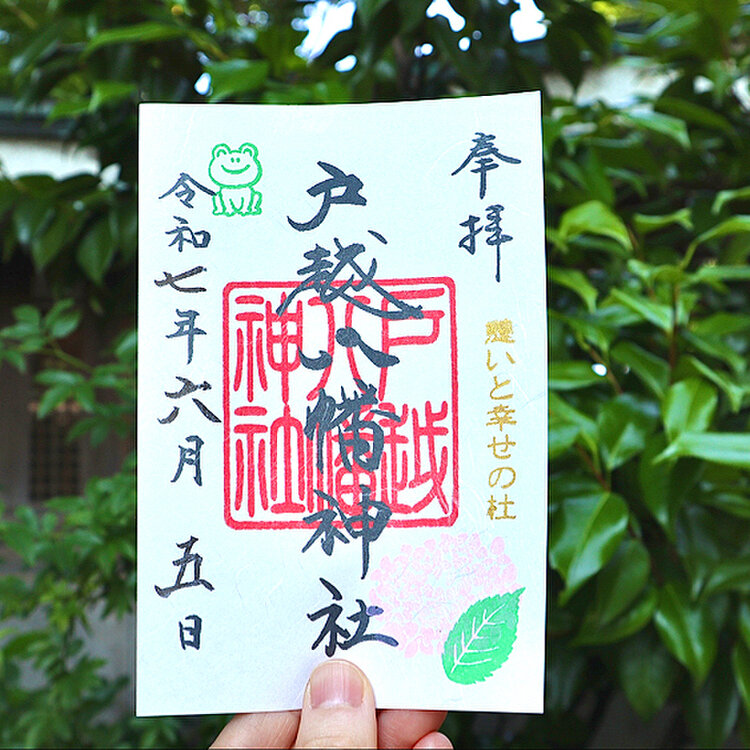 奉拝
憩いと幸せの杜
戸越八幡神社
戸越
八幡
神社
令和七年六月五日